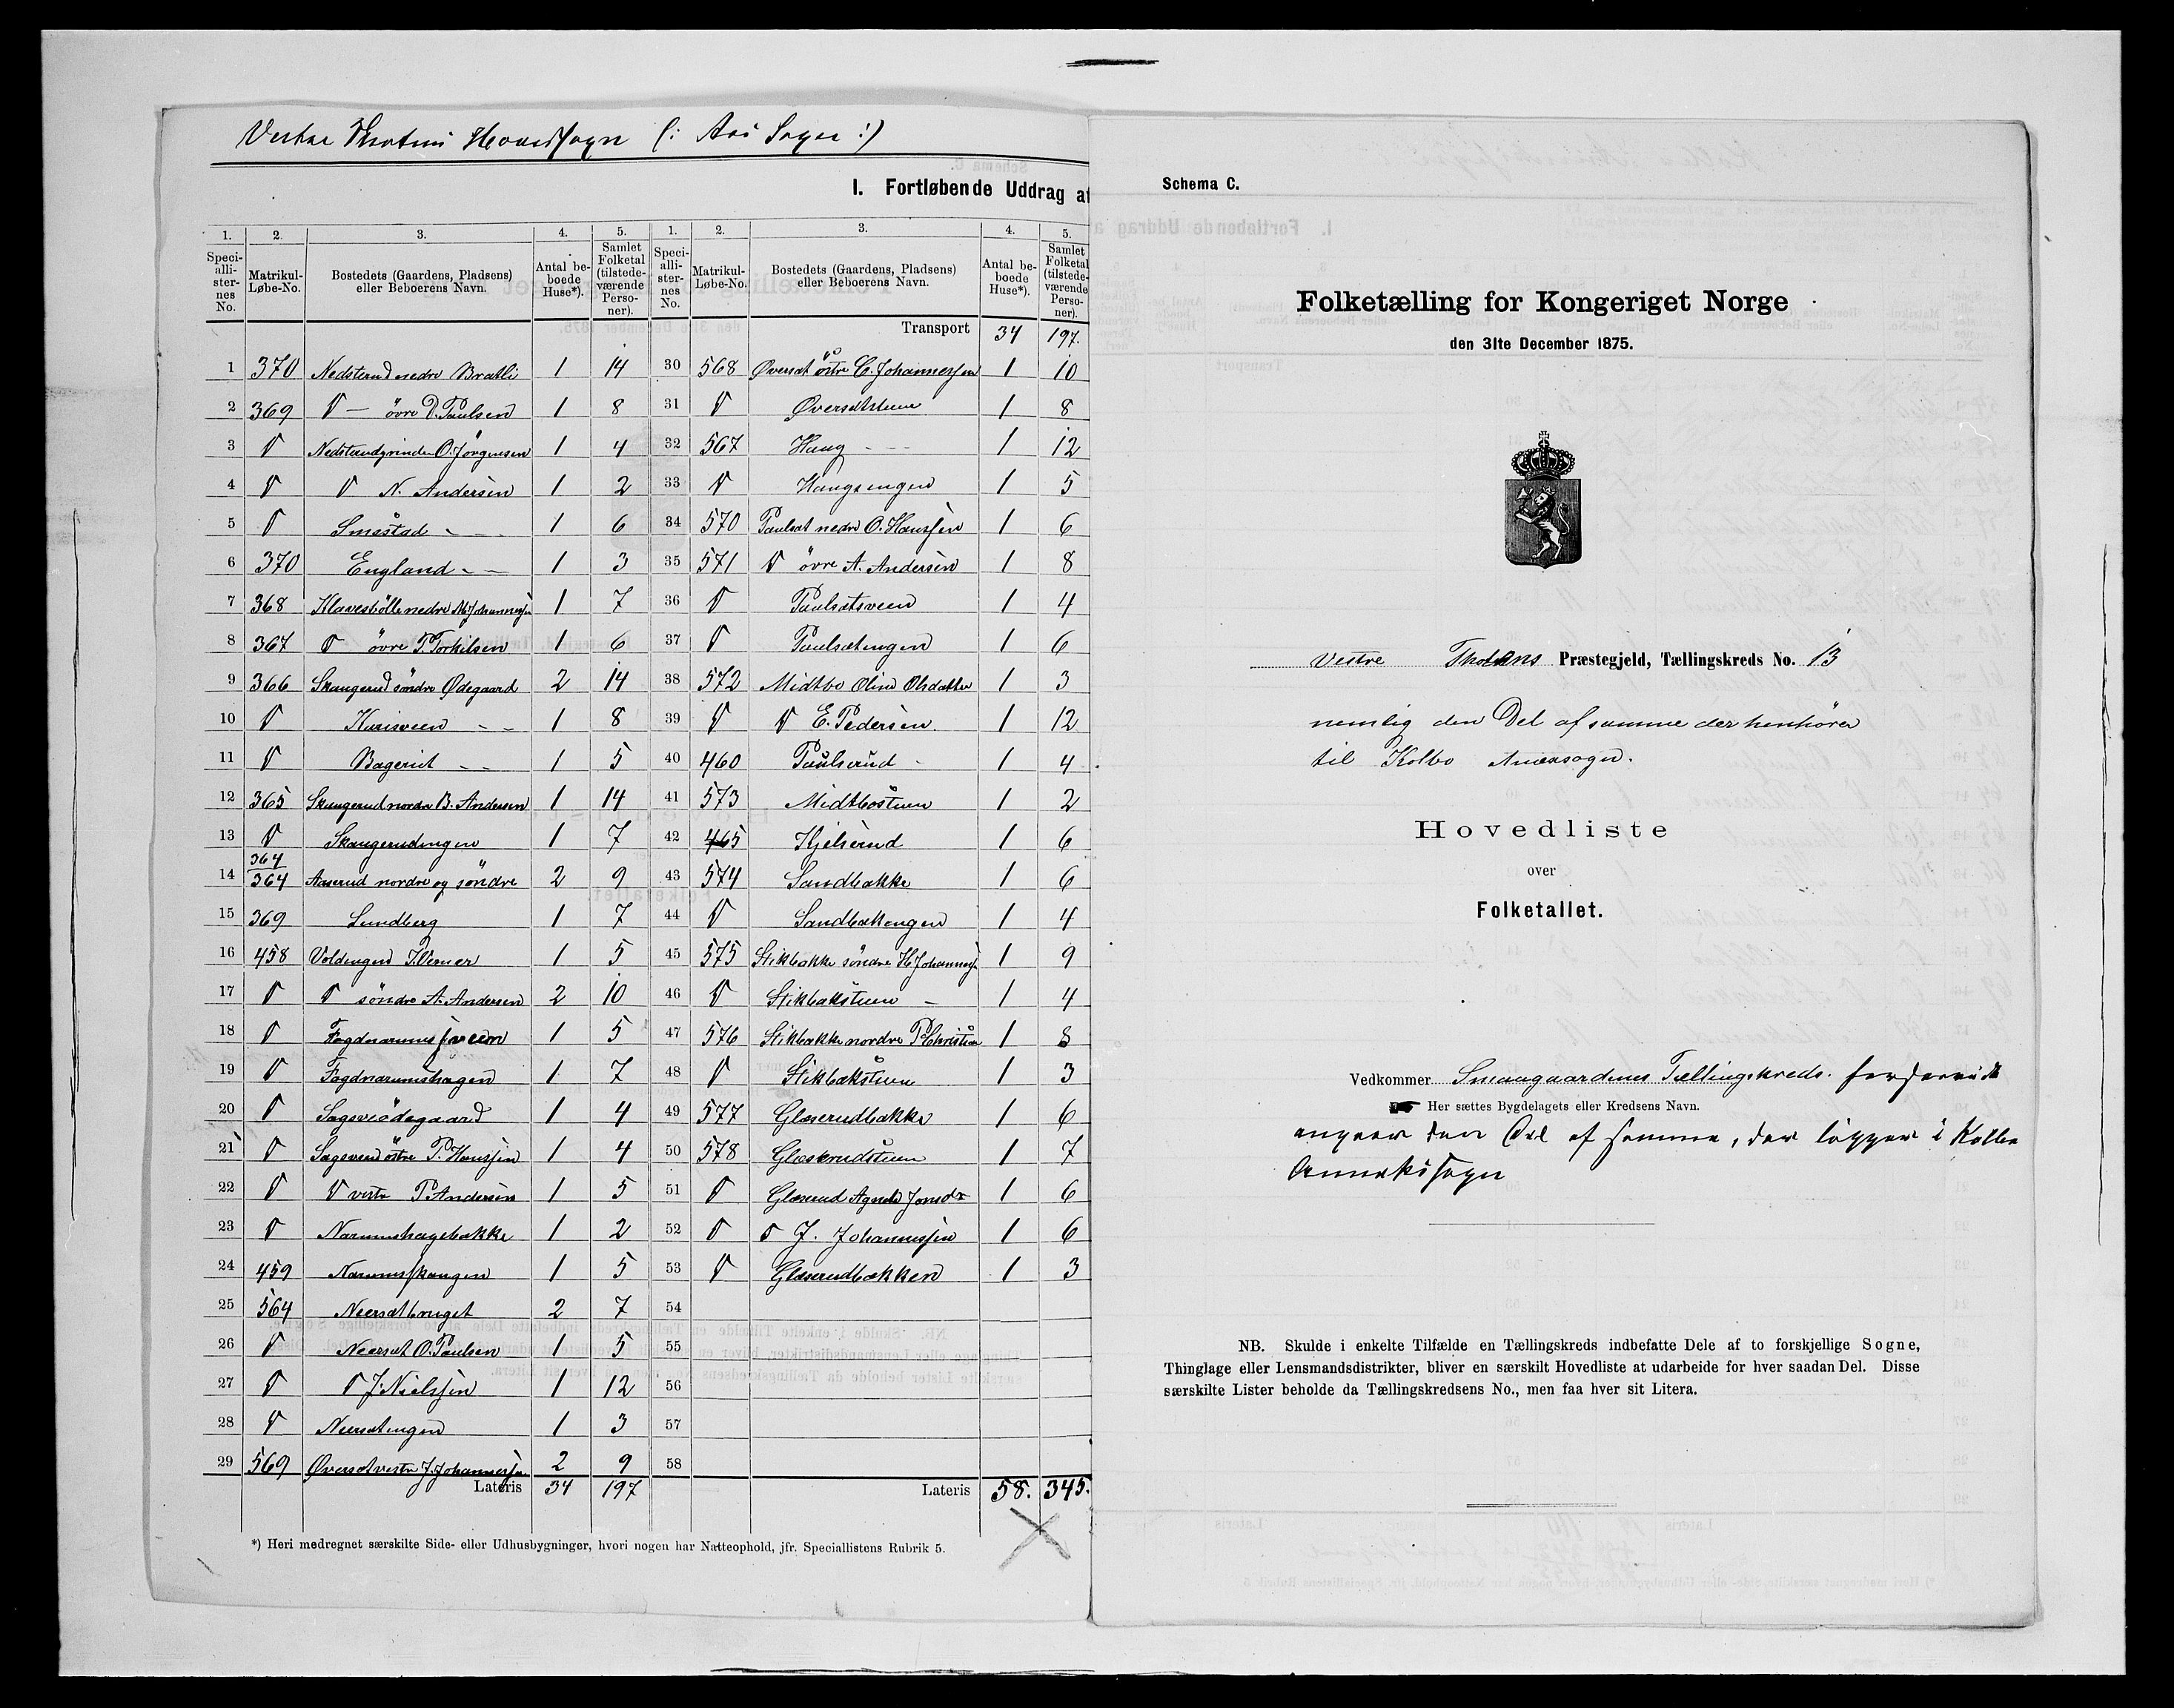 Vestre Thotens Hovedsogn (: Aas Sogn :)
I. Fortløbende Uddrag af
1. 2. 3. 4. 5. 1. 2. 3. 4. 5.
Speciallisternes No. Matrikul-Løbe-No. Bostedets (Gaardens, Pladsens) eller Beboerens Navn. Antal beboede Huse*). Samlet Folketal (tilstedeværende Personer). Speciallisternes No. Matrikul-Løbe-No. Bostedets (Gaardens, Pladsens) eller Beboerens Navn. Antal beboede Huse*). Samlet Folketal (tilstedeværende Personer).
Transport 34 197.
1 370 Nedsterud nedre Bratli 1 14 30 568 Øversæt östre C. Johannessen 1 10
2 369 D — övre D. Paulsen 1 8 31 D Øversætstuen 1 8
3 D Nedsterudgrinden O. Jörgensen 1 4 32 567 Haug 1 12
4 D D N. Andersen 1 2 33 D Haugsengen 1 5
5 D Smestad 1 6 34 570 Paulsæt nedre O. Hanssen 1 6
6 370 England 1 3 35 571 D övre A. Andersen 1 8
7 368 Klavesbölle nedre M. Johannessen 1 7 36 D Paulsætsveen 1 4
8 367 D övre P. Torkilsen 1 6 37 D Paulsætengen 1 6
9 366 Skaugerud söndre Ødegaard 2 14 38 572 Midtbo Oline Olsdatter 1 3
10 D Kurisveen 1 8 39 D D E. Pedersen. 1 12
11 D Bagerict 1 5 40 460 Paulserud 1 4
12 365 Skaugerud nordre B. Andersen 1 14 41 573 Midtbostuen 1 2
13 D Skaugerudengen 1 7 42 465 Kjelserud 1 6
14 364 364 Aaserud nordre og söndre 2 9 43 574 Sandbakke 1 6
15 369 Lundberg 1 7 44 D Sandbakengen 1 4
16 458 Voldengen J. Verner 1 5 45 575 Stikbakke söndre H. Johannessen 1 9
17 D D söndre A. Andersen 2 10 46 D Stikbakstuen 1 4
18 D Fagdnarumssveen 1 5 47 576 Stikbakke nordre P. Christian 1 8
19 D Fagdnarumshagen 1 7 48 D Stikbakstuen 1 3
20 D Sagsveödegaard 1 4 49 577 Glæserudbakke 1 6
21 D Sagsveen östre P. Hanssen 1 4 50 578 Glæserudstuen 1 7
22 D D vestre P. Andersen 1 5 51 D Glæserud Agnethe Jonsdr 1 6
23 D Narumshagebakke 1 2 52 D D J. Johannessen 1 6
24 459 Narumsskaugen 1 5 53 D Glæserudbakken 1 3
25 564 Neersætbruget 2 7 54
26 D Neersæt O. Paulsen 1 5 55
27 D D J. Nielssen 1 12 56
28 D Neersætengen 1 3 57
29 569 Øversæt vestre J. Johannessen. 2 9 58
Lateris 34 197 Lateris 58. 345.
*) Heri medregnet særskilte Side- eller Udhusbygninger, hvori nogen har Natteophold, jfr. Speciallistens Rubrik 5.
Schema C.
Folketælling for Kongeriget Norge
den 31te December 1875.
Vestre Thotens Præstegjeld, Tællingskreds No. 13
nemlig den Del af samme der henhörer
til Kolbo Annexsogn.
Hovedliste
over
Folketallet.
Vedkommer Smaagaardenes Tællingskreds. forsaavidt
Her sættes Bygdelagets eller Kredsens Navn.
angaar den Del af samme, der ligger i Kolbo
Annekssogn
NB. Skulde i enkelte Tilfælde en Tællingskreds indbefatte Dele af to forskjellige Sogne,
Thinglage eller Lensmandsdistrikter, bliver en særskilt Hovedliste at udarbeide for hver saadan Del. Disse
særskilte Lister beholde da Tællingskredsens No., men faa hver sit Litera.